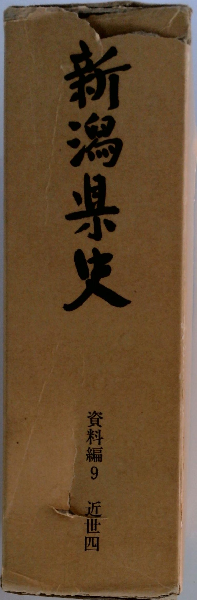 新潟県史
資料編9 近世四